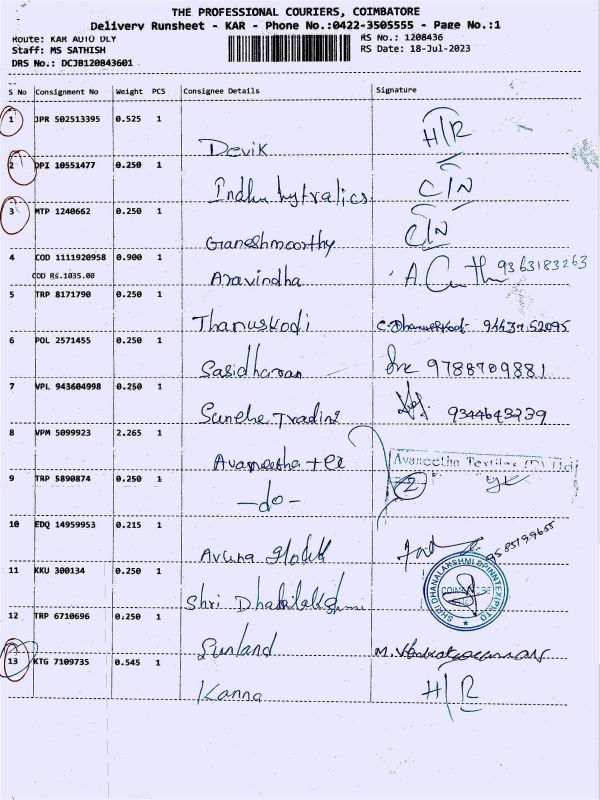 THE PROFESSIONAL COURIERS, COIMBATORE
Delivery Runsheet - KAR - Phone No.:0422-3505555 - Page No.:1
Route: KAR AUTO DLY
RS No.: 1208436
Staff: MS SATHISH
RS Date: 18-Jul-2023
DRS No.: DCJB120843601
S No Consignment No Weight PCS Consignee Details Signature
1 JPR 502513395 0.525 1
Devik H/R
2 DPI 10551477 0.250 1
Indhu hytralics C/N
3 MTP 1240662 0.250 1
Ganeshmoorthy C/N
4 COD 1111920958 0.900 1
COD Rs.1035.00
Aravindha 9363183263
5 TRP 8171790 0.250 1
Thanuskodi 94437 52095
6 POL 2571455 0.250 1
Sasidharan 9788709881
7 VPL 943604998 0.250 1
Sunehe Trading 9344643239
8 VPM 5099923 2.265 1
Avaneetha tex
Avaneetha Textiles (P) Ltd
9 TRP 5890874 0.250 1
-do- 2
10 EDQ 14959953 0.215 1
Aruna 9585799655
11 KKU 300134 0.250 1
Shri Dhanalakshmi
SHRI DHANALAKSHMI SPINNTEX (P) LTD
COIMBATORE
12 TRP 6710696 0.250 1
Sunland
13 KTG 7109735 0.545 1
Kanna H/R